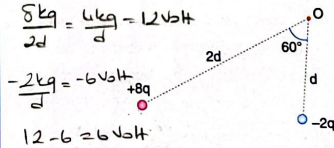 8kq/2d = 4kq/d = 12 Volt
-2kq/d = -6 Volt
12 - 6 = 6 Volt
O
60°
2d
d
+8q
-2q